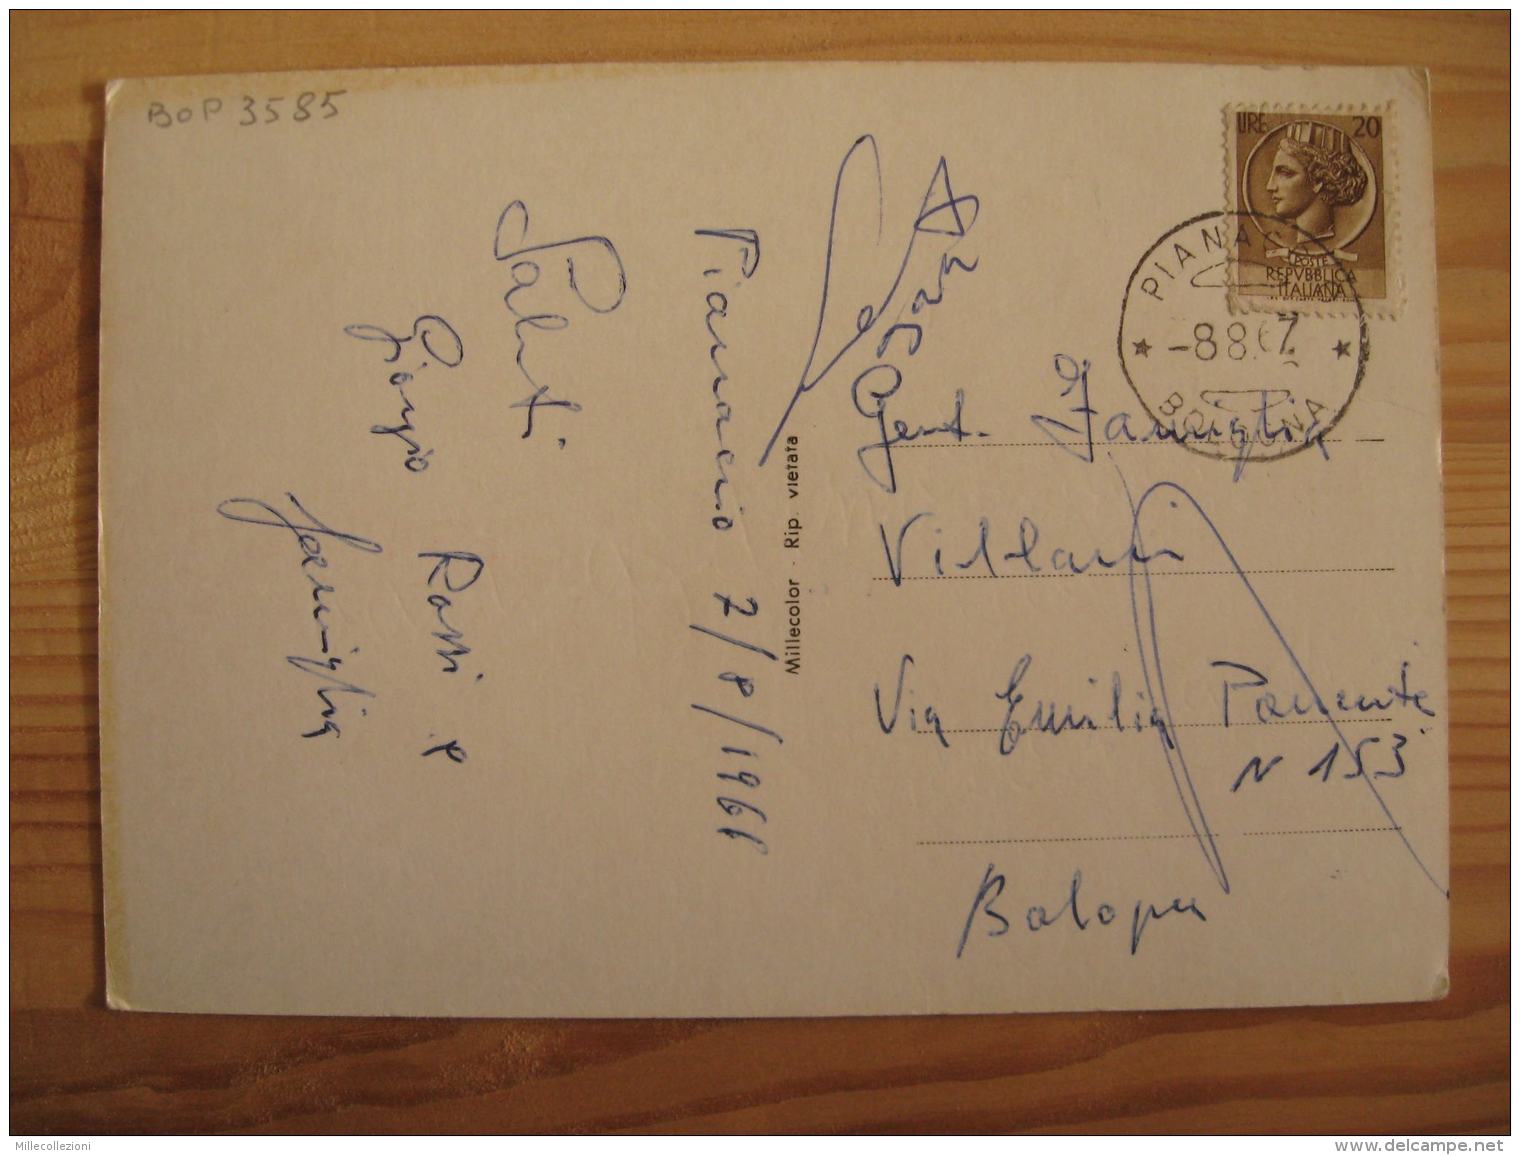 BOP 3585
LIRE 20
POSTE
REPVBBLICA
ITALIANA
PIANAC
-8 8.67
BOLOGNA
Pianaccio 7/8/1966
Saluti
Giorgio Rossi e
famiglia
Millecolor - Rip. vietata
Gent. Famiglia
Villani
Via Emilia Ponente
N 153
Bologna
Millecollezioni
delcampe.net